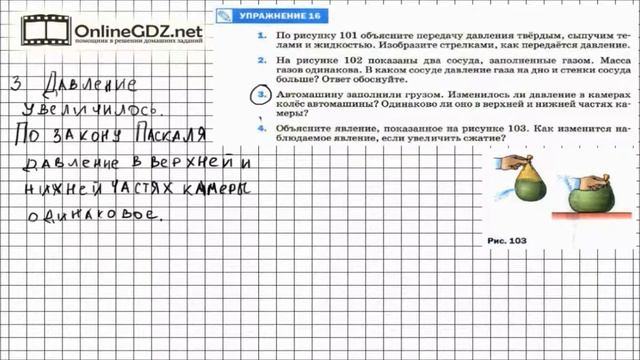 OnlineGDZ.net
помощник в решении домашних заданий
УПРАЖНЕНИЕ 16
1. По рисунку 101 объясните передачу давления твёрдым, сыпучим те-
лами и жидкостью. Изобразите стрелками, как передаётся давление.
2. На рисунке 102 показаны два сосуда, заполненные газом. Масса
газов одинакова. В каком сосуде давление газа на дно и стенки сосуда
больше? Ответ обоснуйте.
3. Автомашину заполнили грузом. Изменилось ли давление в камерах
колёс автомашины? Одинаково ли оно в верхней и нижней частях ка-
меры?
4. Объясните явление, показанное на рисунке 103. Как изменится на-
блюдаемое явление, если увеличить сжатие?
Рис. 103
3 Давление
увеличилось.
По закону Паскаля
давление в верхней и
нижней частях камеры
одинаковое.